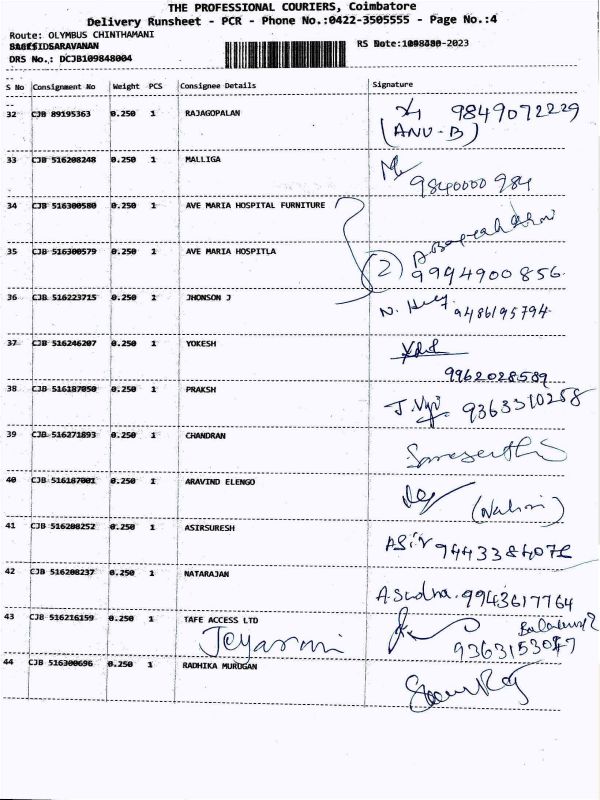 THE PROFESSIONAL COURIERS, Coimbatore
Delivery Runsheet - PCR - Phone No.:0422-3505555 - Page No.:4
Route: OLYMBUS CHINTHAMANI
SARAVANAN
DRS No.: DCJB109848004
RS Date: -2023
S No Consignment No Weight PCS Consignee Details Signature
32 CJB 89195363 0.250 1 RAJAGOPALAN 9849072229
(ANU-B)
33 CJB 516208248 0.250 1 MALLIGA
9840000984
34 CJB 516300580 0.250 1 AVE MARIA HOSPITAL FURNITURE
35 CJB 516300579 0.250 1 AVE MARIA HOSPITLA (2) 9944900856.
36 CJB 516223715 0.250 1 JHONSON J 9486195794.
37 CJB 516246207 0.250 1 YOKESH
9962028589
38 CJB 516187050 0.250 1 PRAKSH 9363310258
39 CJB 516271893 0.250 1 CHANDRAN
40 CJB 516187001 0.250 1 ARAVIND ELENGO
41 CJB 516208252 0.250 1 ASIRSURESH
42 CJB 516208237 0.250 1 NATARAJAN
A.Sudha. 9943617764
43 CJB 516216159 0.250 1 TAFE ACCESS LTD
44 CJB 516300696 0.250 1 RADHIKA MURUGAN